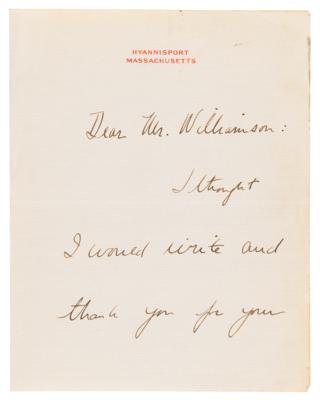 HYANNISPORT
MASSACHUSETTS
Dear Mr. Williamson:
I thought
I would write and
thank you for your